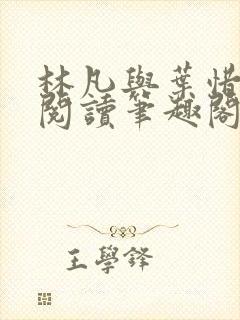 林凡與葉惜
閱讀筆趣閣
王學鋒